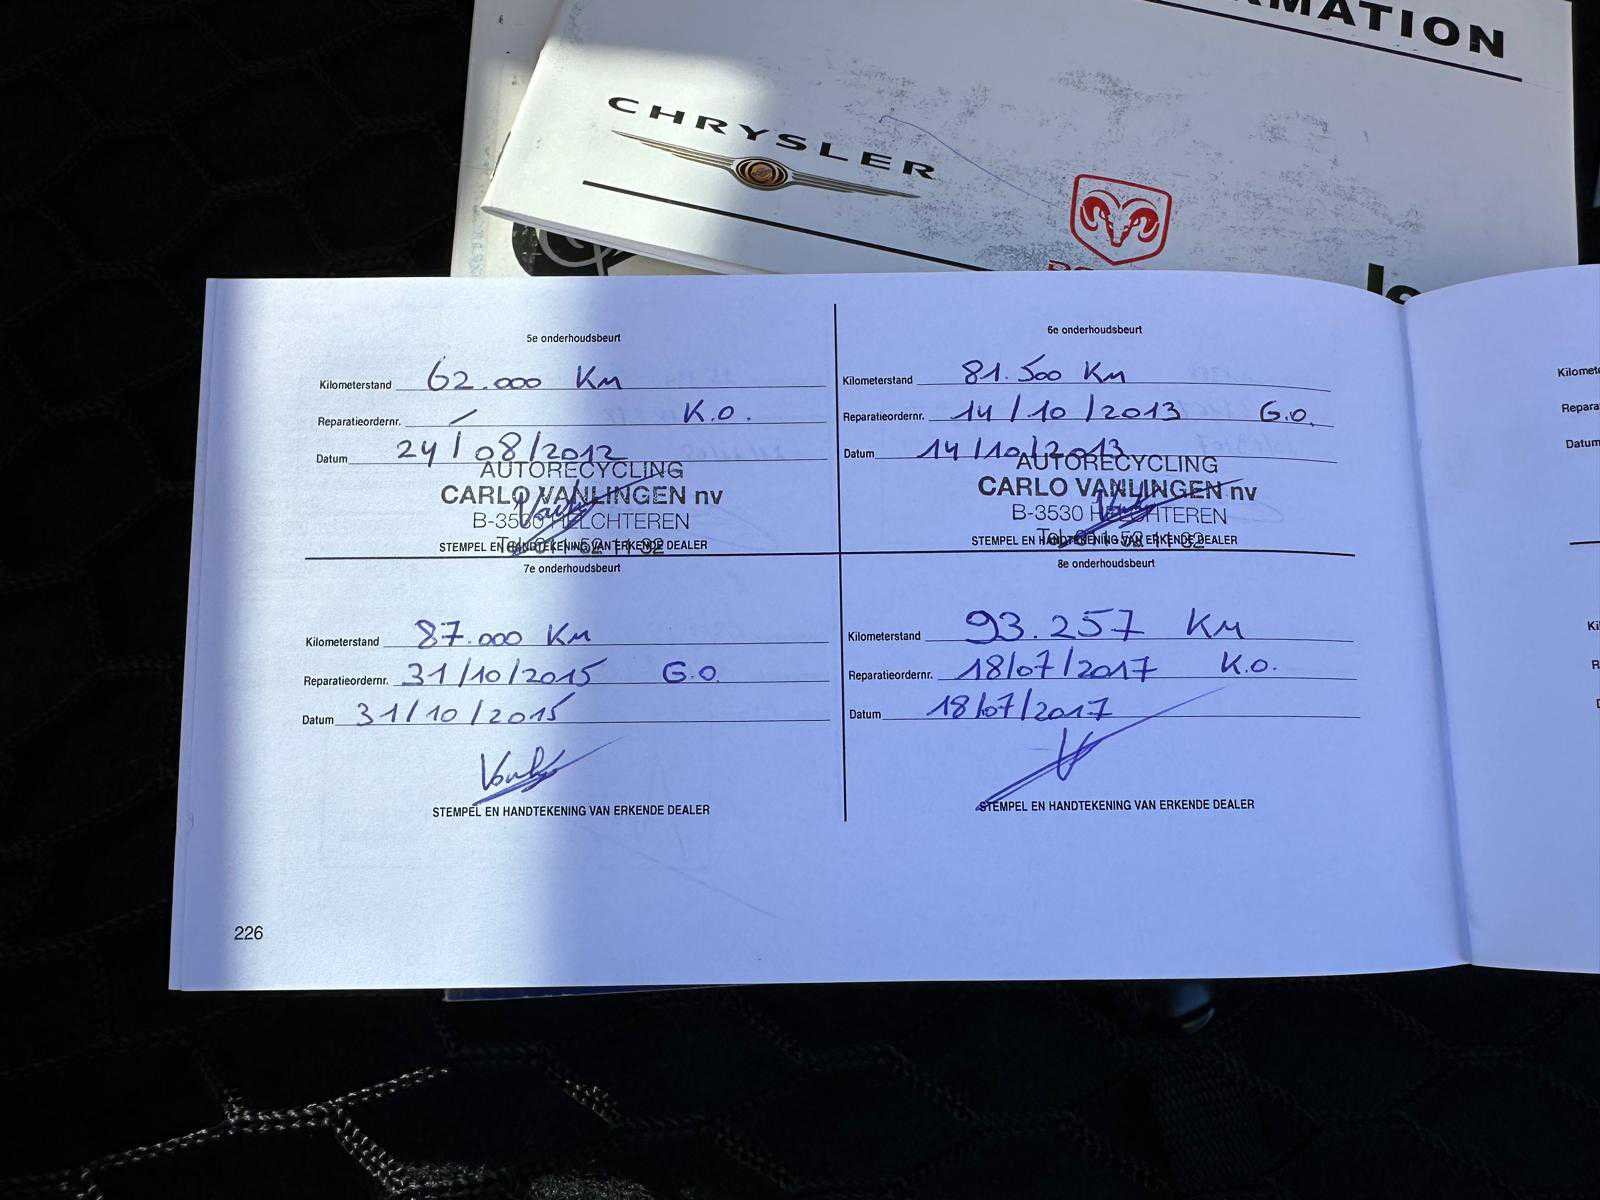 CHRYSLER
5e onderhoudsbeurt
Kilometerstand 62.000 KM
Reparatieordernr. / K.O.
Datum 24/08/2012
AUTORECYCLING
CARLO VANLINGEN nv
B-3530 HELCHTEREN
STEMPEL EN HANDTEKENING VAN ERKENDE DEALER
6e onderhoudsbeurt
Kilometerstand 81.500 KM
Reparatieordernr. 14/10/2013 G.O.
Datum 14/10/2013
AUTORECYCLING
CARLO VANLINGEN nv
B-3530 HELCHTEREN
STEMPEL EN HANDTEKENING VAN ERKENDE DEALER
7e onderhoudsbeurt
Kilometerstand 87.000 KM
Reparatieordernr. 31/10/2015 G.O.
Datum 31/10/2015
STEMPEL EN HANDTEKENING VAN ERKENDE DEALER
8e onderhoudsbeurt
Kilometerstand 93.257 KM
Reparatieordernr. 18/07/2017 K.O.
Datum 18/07/2017
STEMPEL EN HANDTEKENING VAN ERKENDE DEALER
226
Datum